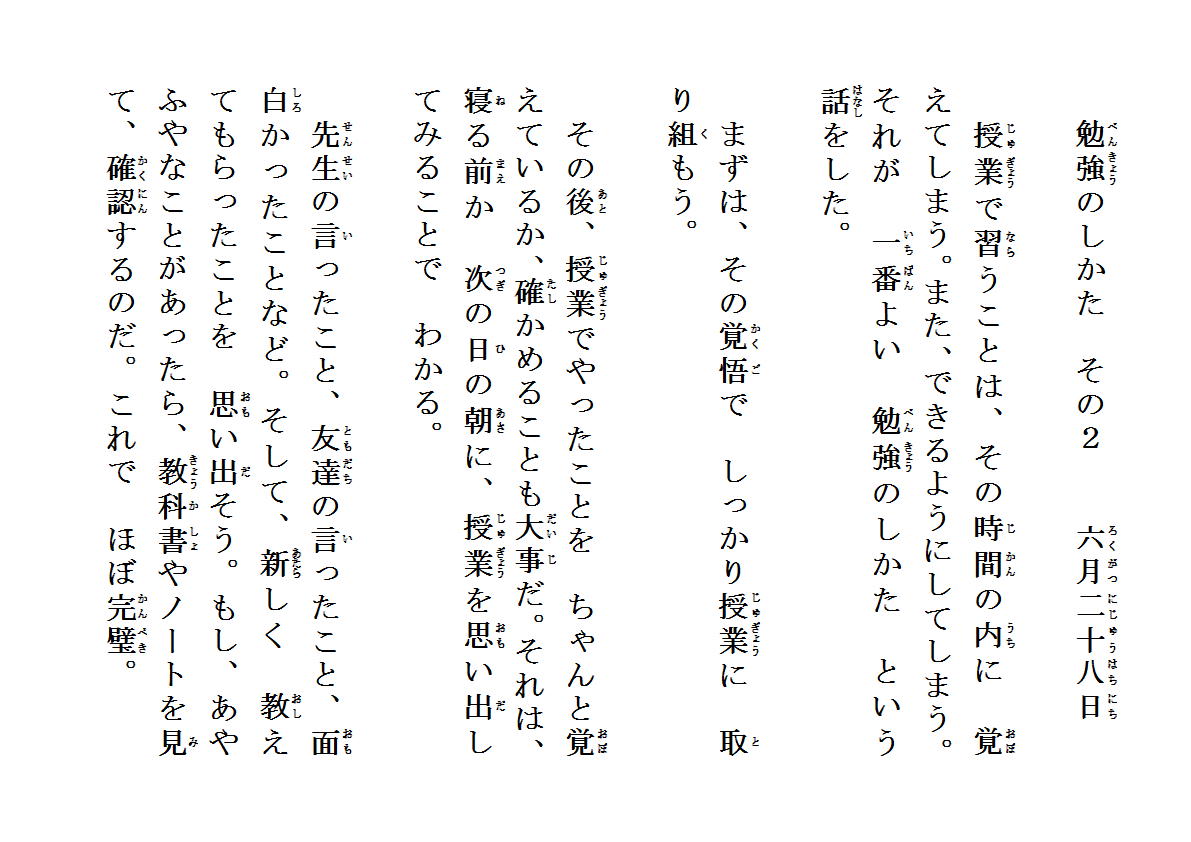 勉強のしかた　その２　　六月二十八日
授業で習うことは、その時間の内に　覚
えてしまう。また、できるようにしてしまう。
それが　一番よい　勉強のしかた　という
話をした。
まずは、その覚悟で　しっかり授業に　取
り組もう。
その後、授業でやったことを　ちゃんと覚
えているか、確かめることも大事だ。それは、
寝る前か　次の日の朝に、授業を思い出し
てみることで　わかる。
先生の言ったこと、友達の言ったこと、面
白かったことなど。そして、新しく　教え
てもらったことを　思い出そう。もし、あや
ふやなことがあったら、教科書やノートを見
て、確認するのだ。これで　ほぼ完璧。